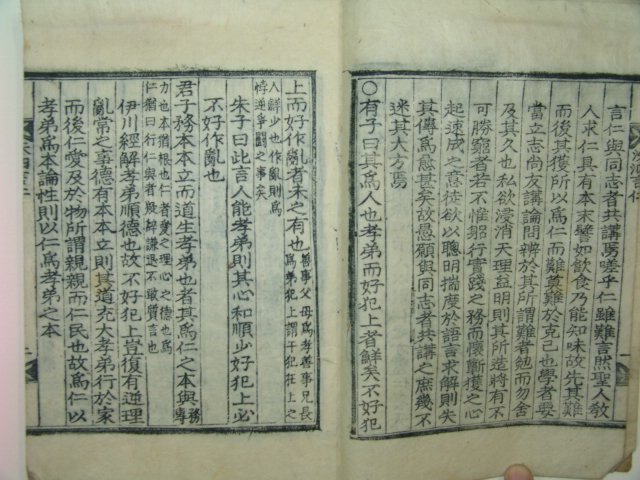 言仁與同志者共講焉嗟乎仁雖難言然聖人敎
人求仁具有本末譬如飮食乃能知味故先其難
而後其獲所以爲仁而難莫難於克己也學者要
當立志尚友講論問辨於其所謂難者勉而勿舍
及其久也私欲浸消天理益明則其所造將有不
可勝窮者若不惟躬行實踐之務而懷蘄獲之心
起速成之意徒欲以聰明揣度於語言求解則失
其傳爲愈甚矣故愚願與同志者共講之庶幾不
迷其大方焉
○有子曰其爲人也孝弟而好犯上者鮮矣不好犯
上而好作亂者未之有也善事父母爲孝善事兄長爲弟犯上謂干犯在上之
人鮮少也作亂則爲悖逆爭鬪之事矣
朱子曰此言人能孝弟則其心和順少好犯上必
不好作亂也
君子務本本立而道生孝弟也者其爲仁之本與務專
力也本猶根也仁者愛之理心之德也爲仁猶曰行仁與者疑辭謙退不敢質言也
伊川經解孝弟順德也故不好犯上豈復有逆理
亂常之事德有本本立則其道充大孝弟行於家
而後仁愛及於物所謂親親而仁民也故爲仁以
孝弟爲本論性則以仁爲孝弟之本